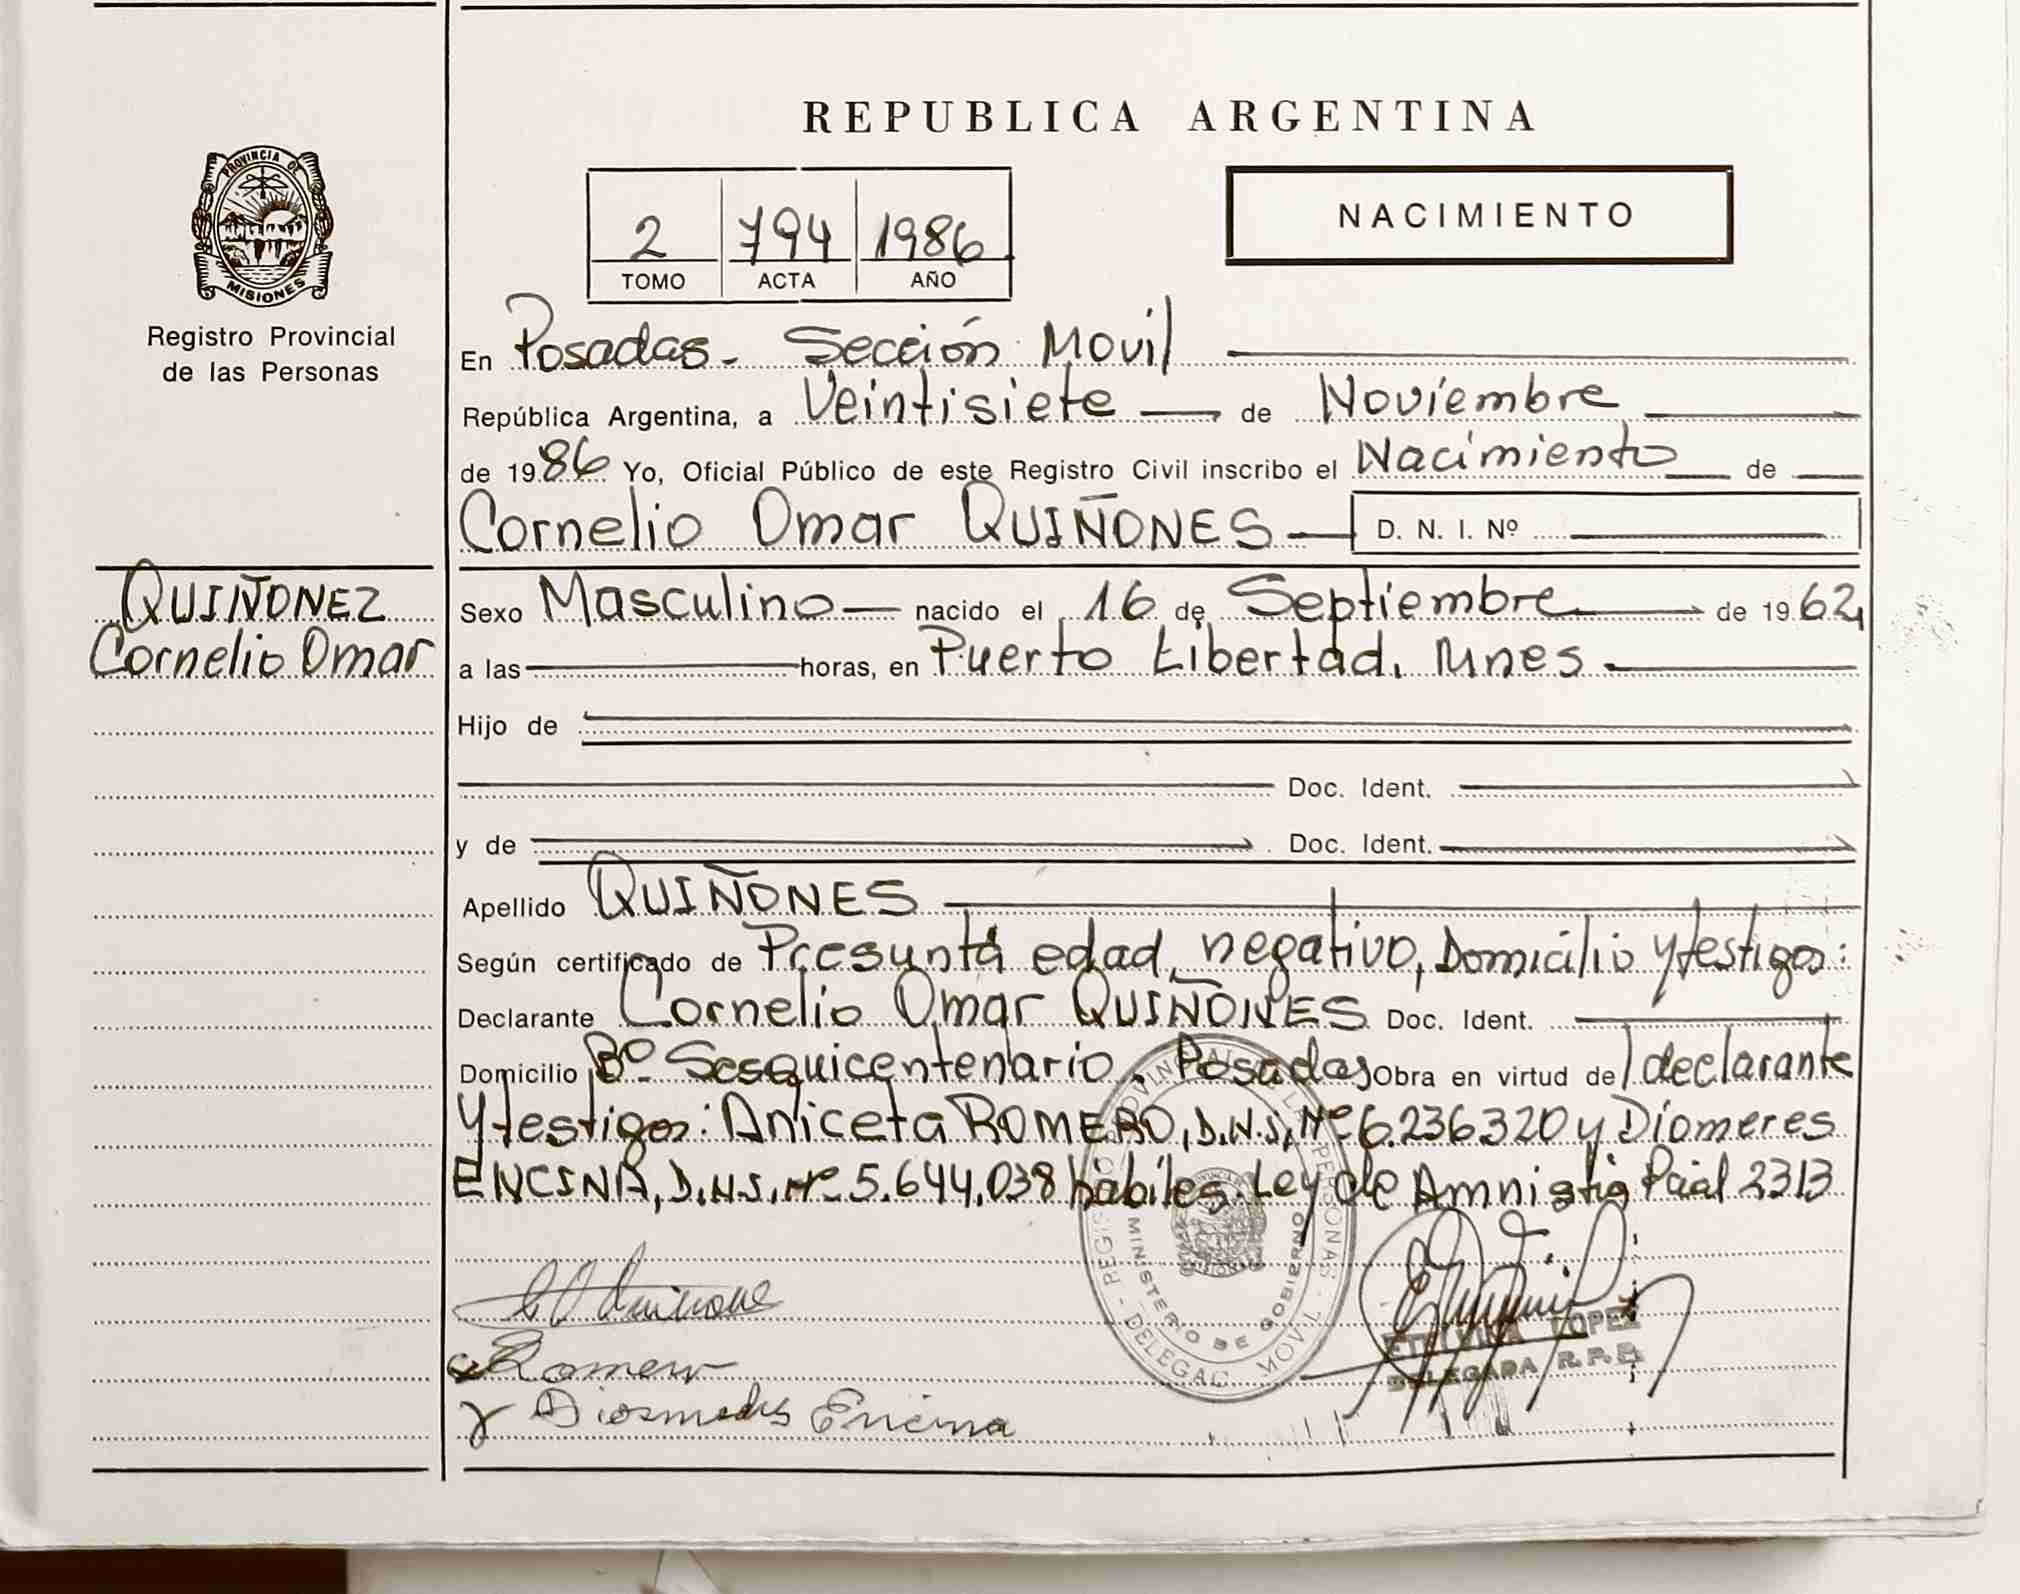 REPUBLICA ARGENTINA
PROVINCIA DE MISIONES
Registro Provincial
de las Personas
2 794 1986
TOMO ACTA AÑO
NACIMIENTO
En Posadas - Sección Movil
República Argentina, a Veintisiete de Noviembre
de 1986 Yo, Oficial Público de este Registro Civil inscribo el Nacimiento de
Cornelio Omar QUIÑONES D. N. I. Nº
QUIÑONEZ
Cornelio Omar
Sexo Masculino nacido el 16 de Septiembre de 1962,
a las horas, en Puerto Libertad, Mnes
Hijo de
Doc. Ident.
y de Doc. Ident.
Apellido QUIÑONES
Según certificado de Presunta edad, negativo, Domicilio y testigos:
Declarante Cornelio Omar QUIÑONES Doc. Ident.
Domicilio Bº Sesquicentenario, Posadas Obra en virtud de l declarante
y testigos: Aniceta ROMERO, D.N.I, Nº 6.236320 y Diomeres
ENCINA, D.N.I. Nº 5.644.038 habiles. Ley de Amnistia Pcial 2313
Romero
y Diosmedes Encina
REGISTRO PROVINCIAL DE LAS PERSONAS - DELEGAC. MOVIL 1
MINISTERIO DE GOBIERNO
LOPEZ
DELEGADA R.P.P.